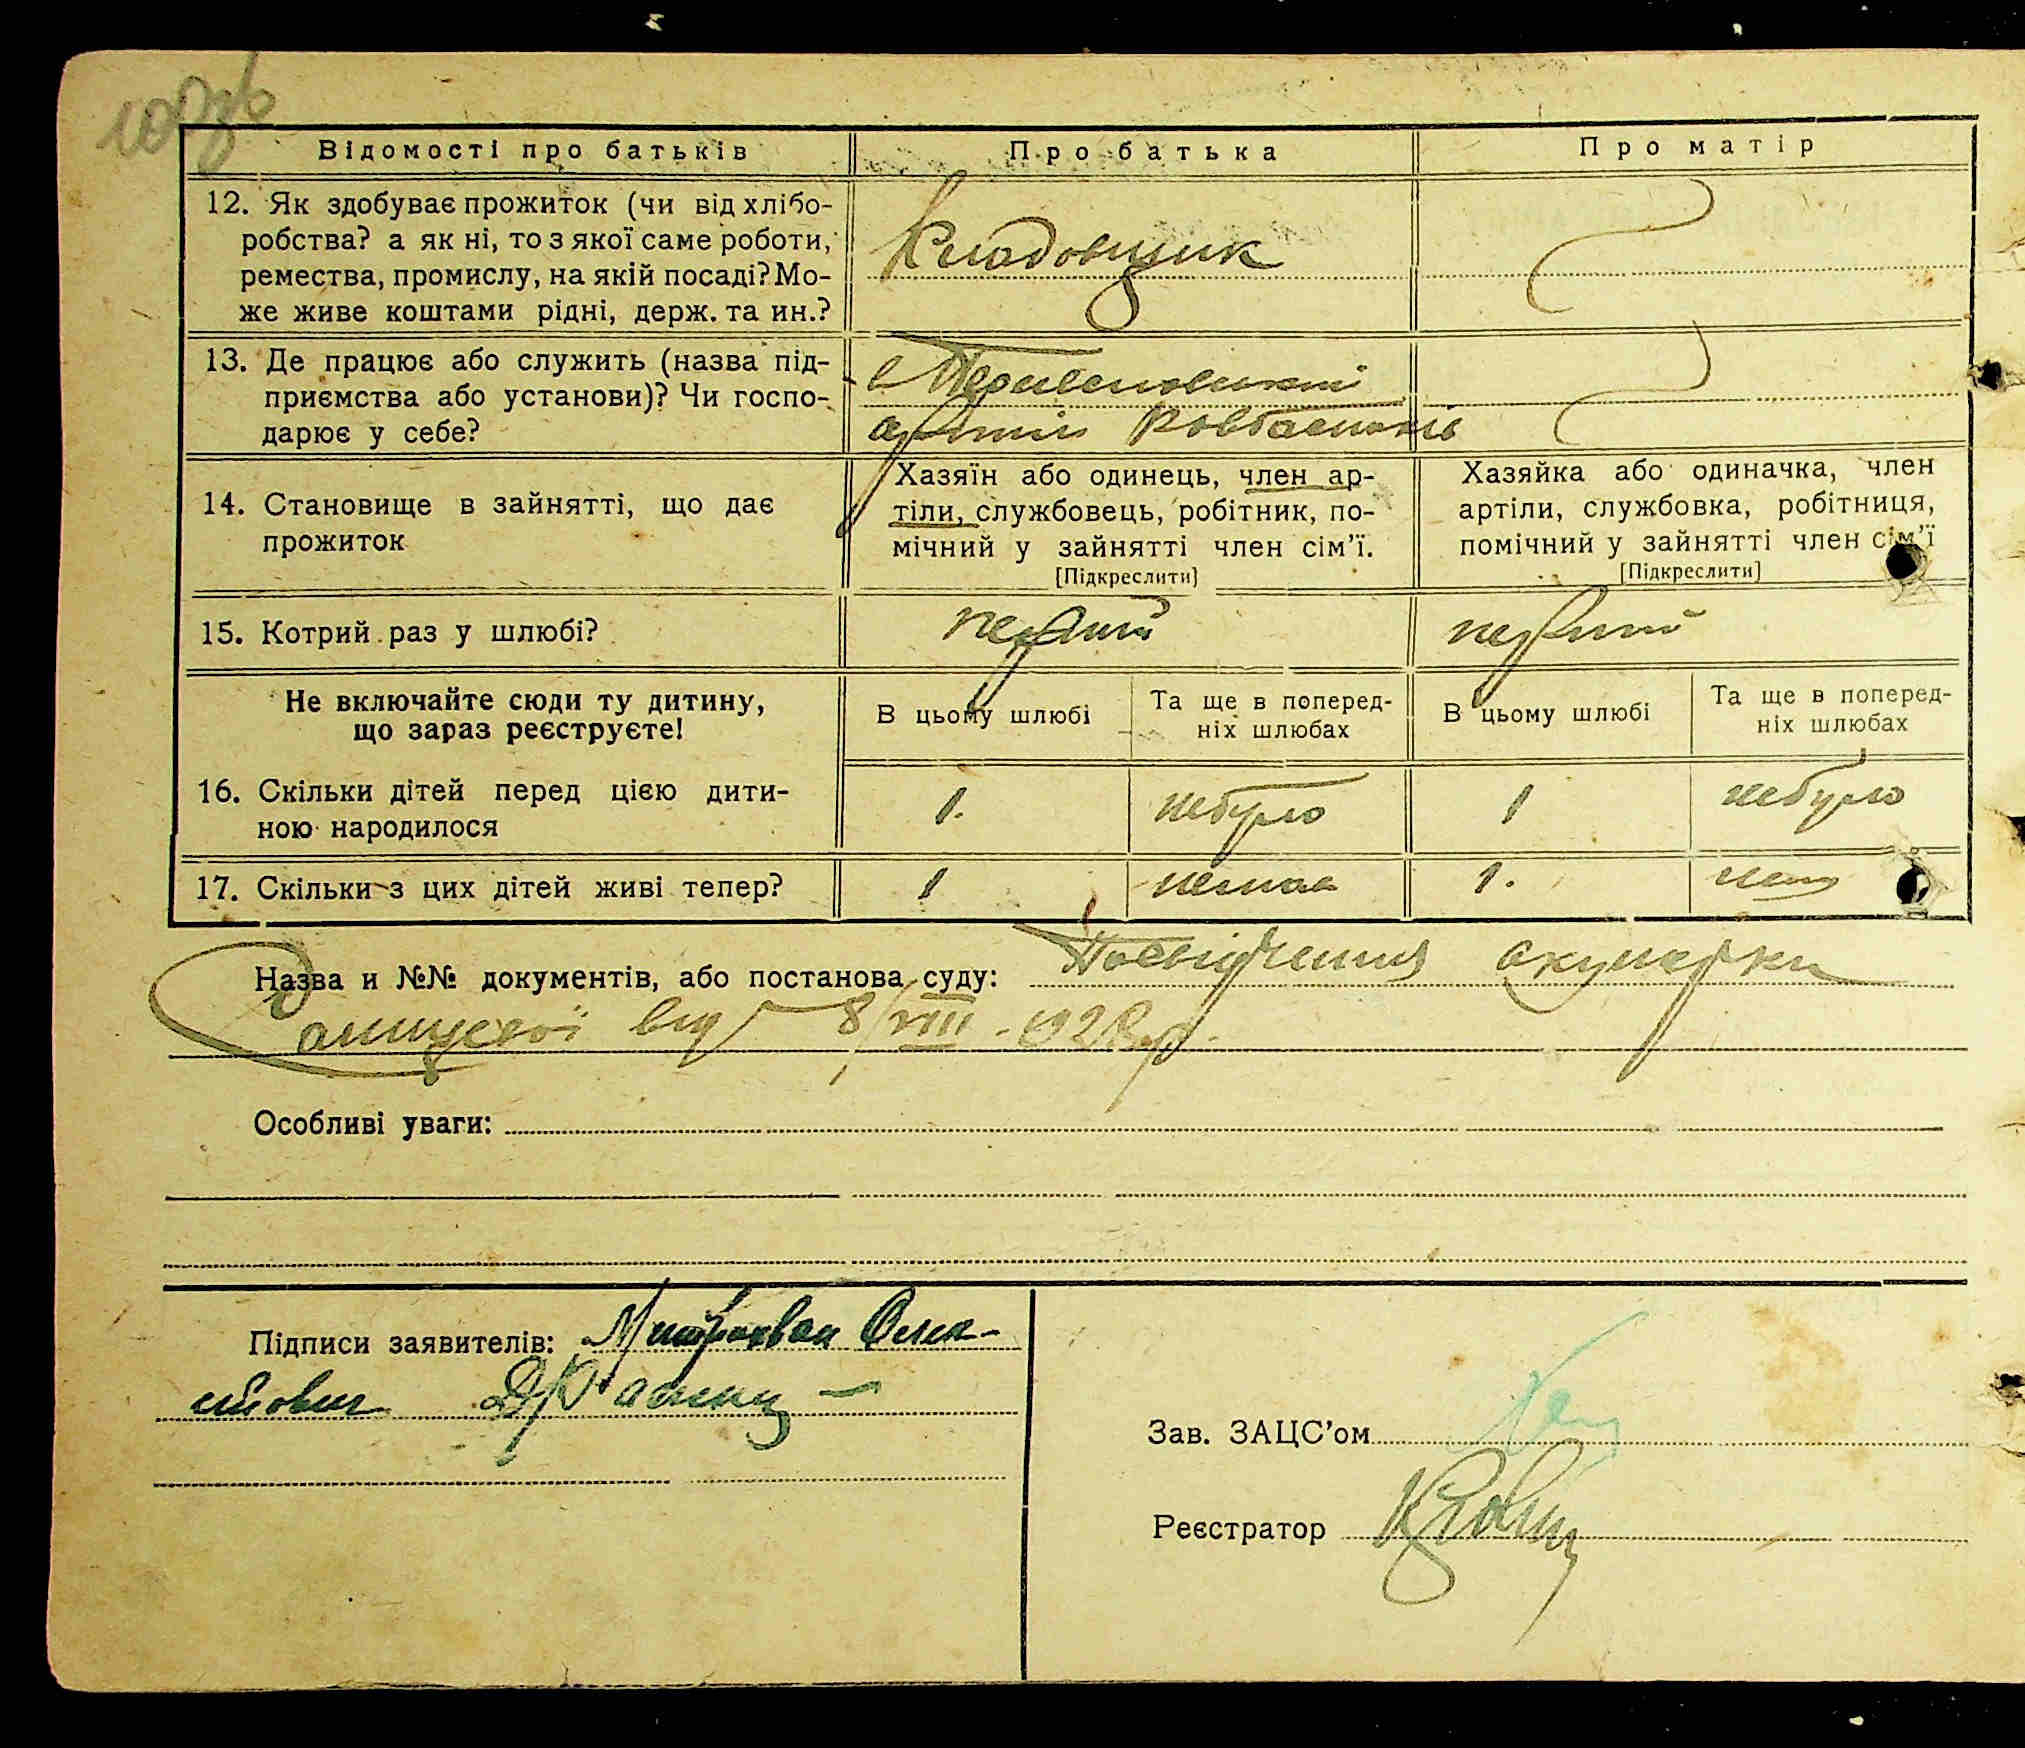 Відомості про батьків
Про батька
Про матір
12. Як здобуває прожиток (чи від хлібо-
робства? а як ні, то з якої саме роботи,
ремества, промислу, на якій посаді? Мо-
же живе коштами рідні, держ. та ин.?
Кладовщик
13. Де працює або служить (назва під-
приємства або установи)? Чи госпо-
дарює у себе?
артіли
14. Становище в зайнятті, що дає
прожиток
Хазяїн або одинець, член ар-
тіли, службовець, робітник, по-
мічний у зайнятті член сім'ї.
[Підкреслити]
Хазяйка або одиначка, член
артіли, службовка, робітниця,
помічний у зайнятті член сім'ї
[Підкреслити]
15. Котрий раз у шлюбі?
первий
первий
Не включайте сюди ту дитину,
що зараз реєструєте!
В цьому шлюбі
Та ще в поперед-
ніх шлюбах
В цьому шлюбі
Та ще в поперед-
ніх шлюбах
16. Скільки дітей перед цією дити-
ною народилося
1.
небуло
1
небуло
17. Скільки з цих дітей живі тепер?
1
немає
1.
Назва и №№ документів, або постанова суду: Посвідчення акушерки
від 8/VIII-1928 р.
Особливі уваги:
Підписи заявителів: Митрохван Олек-
Зав. ЗАЦС'ом
Реєстратор